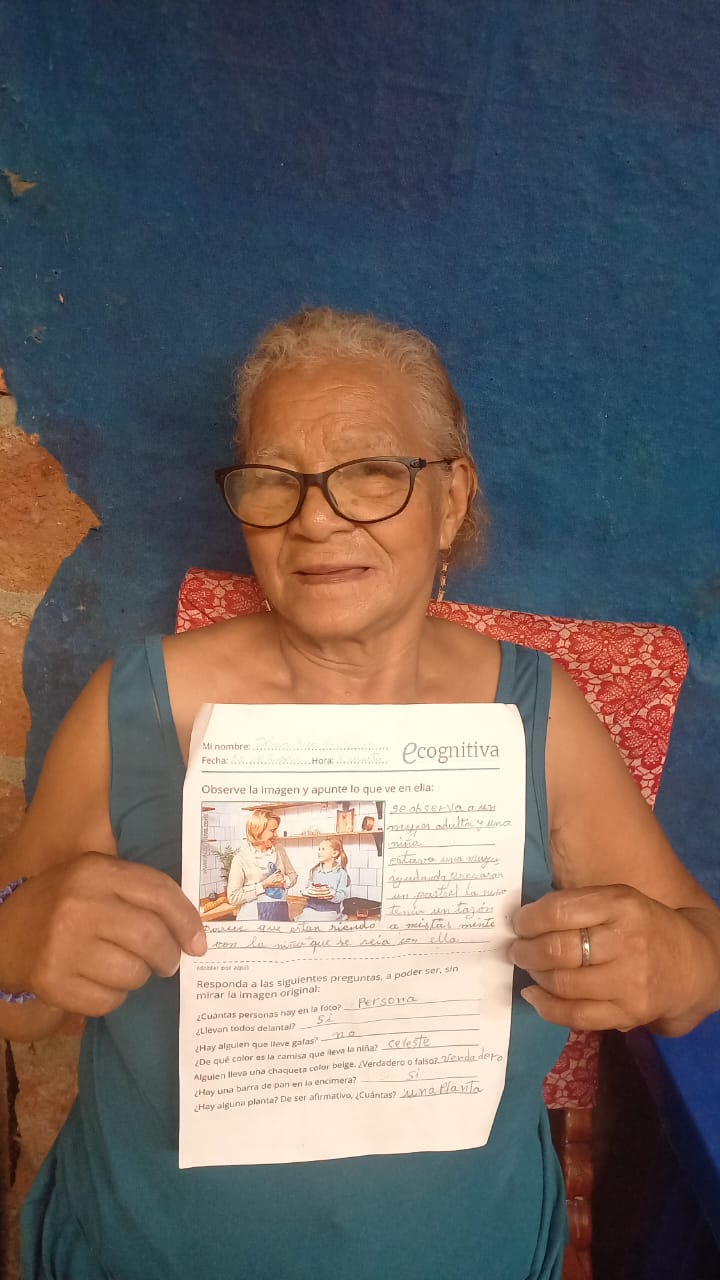 Mi nombre:
ecognitiva
Fecha: Hora:
Observe la imagen y apunte lo que ve en ella:
se observa a un
mujer adulta y una
niña
estava una mujer
ayudando
un pastel la niña
tenia un tazón
Parece que estan riendo a mistas mente
con la niña que se reia con ella
(doblar por aquí)
Responda a las siguientes preguntas, a poder ser, sin
mirar la imagen original:
¿Cuántas personas hay en la foto? Persona
¿Llevan todos delantal? Si
¿Hay alguien que lleve gafas? no
¿De qué color es la camisa que lleva la niña? celeste
Alguien lleva una chaqueta color beige. ¿Verdadero o falso? Verdadero
¿Hay una barra de pan en la encimera? Si
¿Hay alguna planta? De ser afirmativo, ¿Cuántas? una Planta